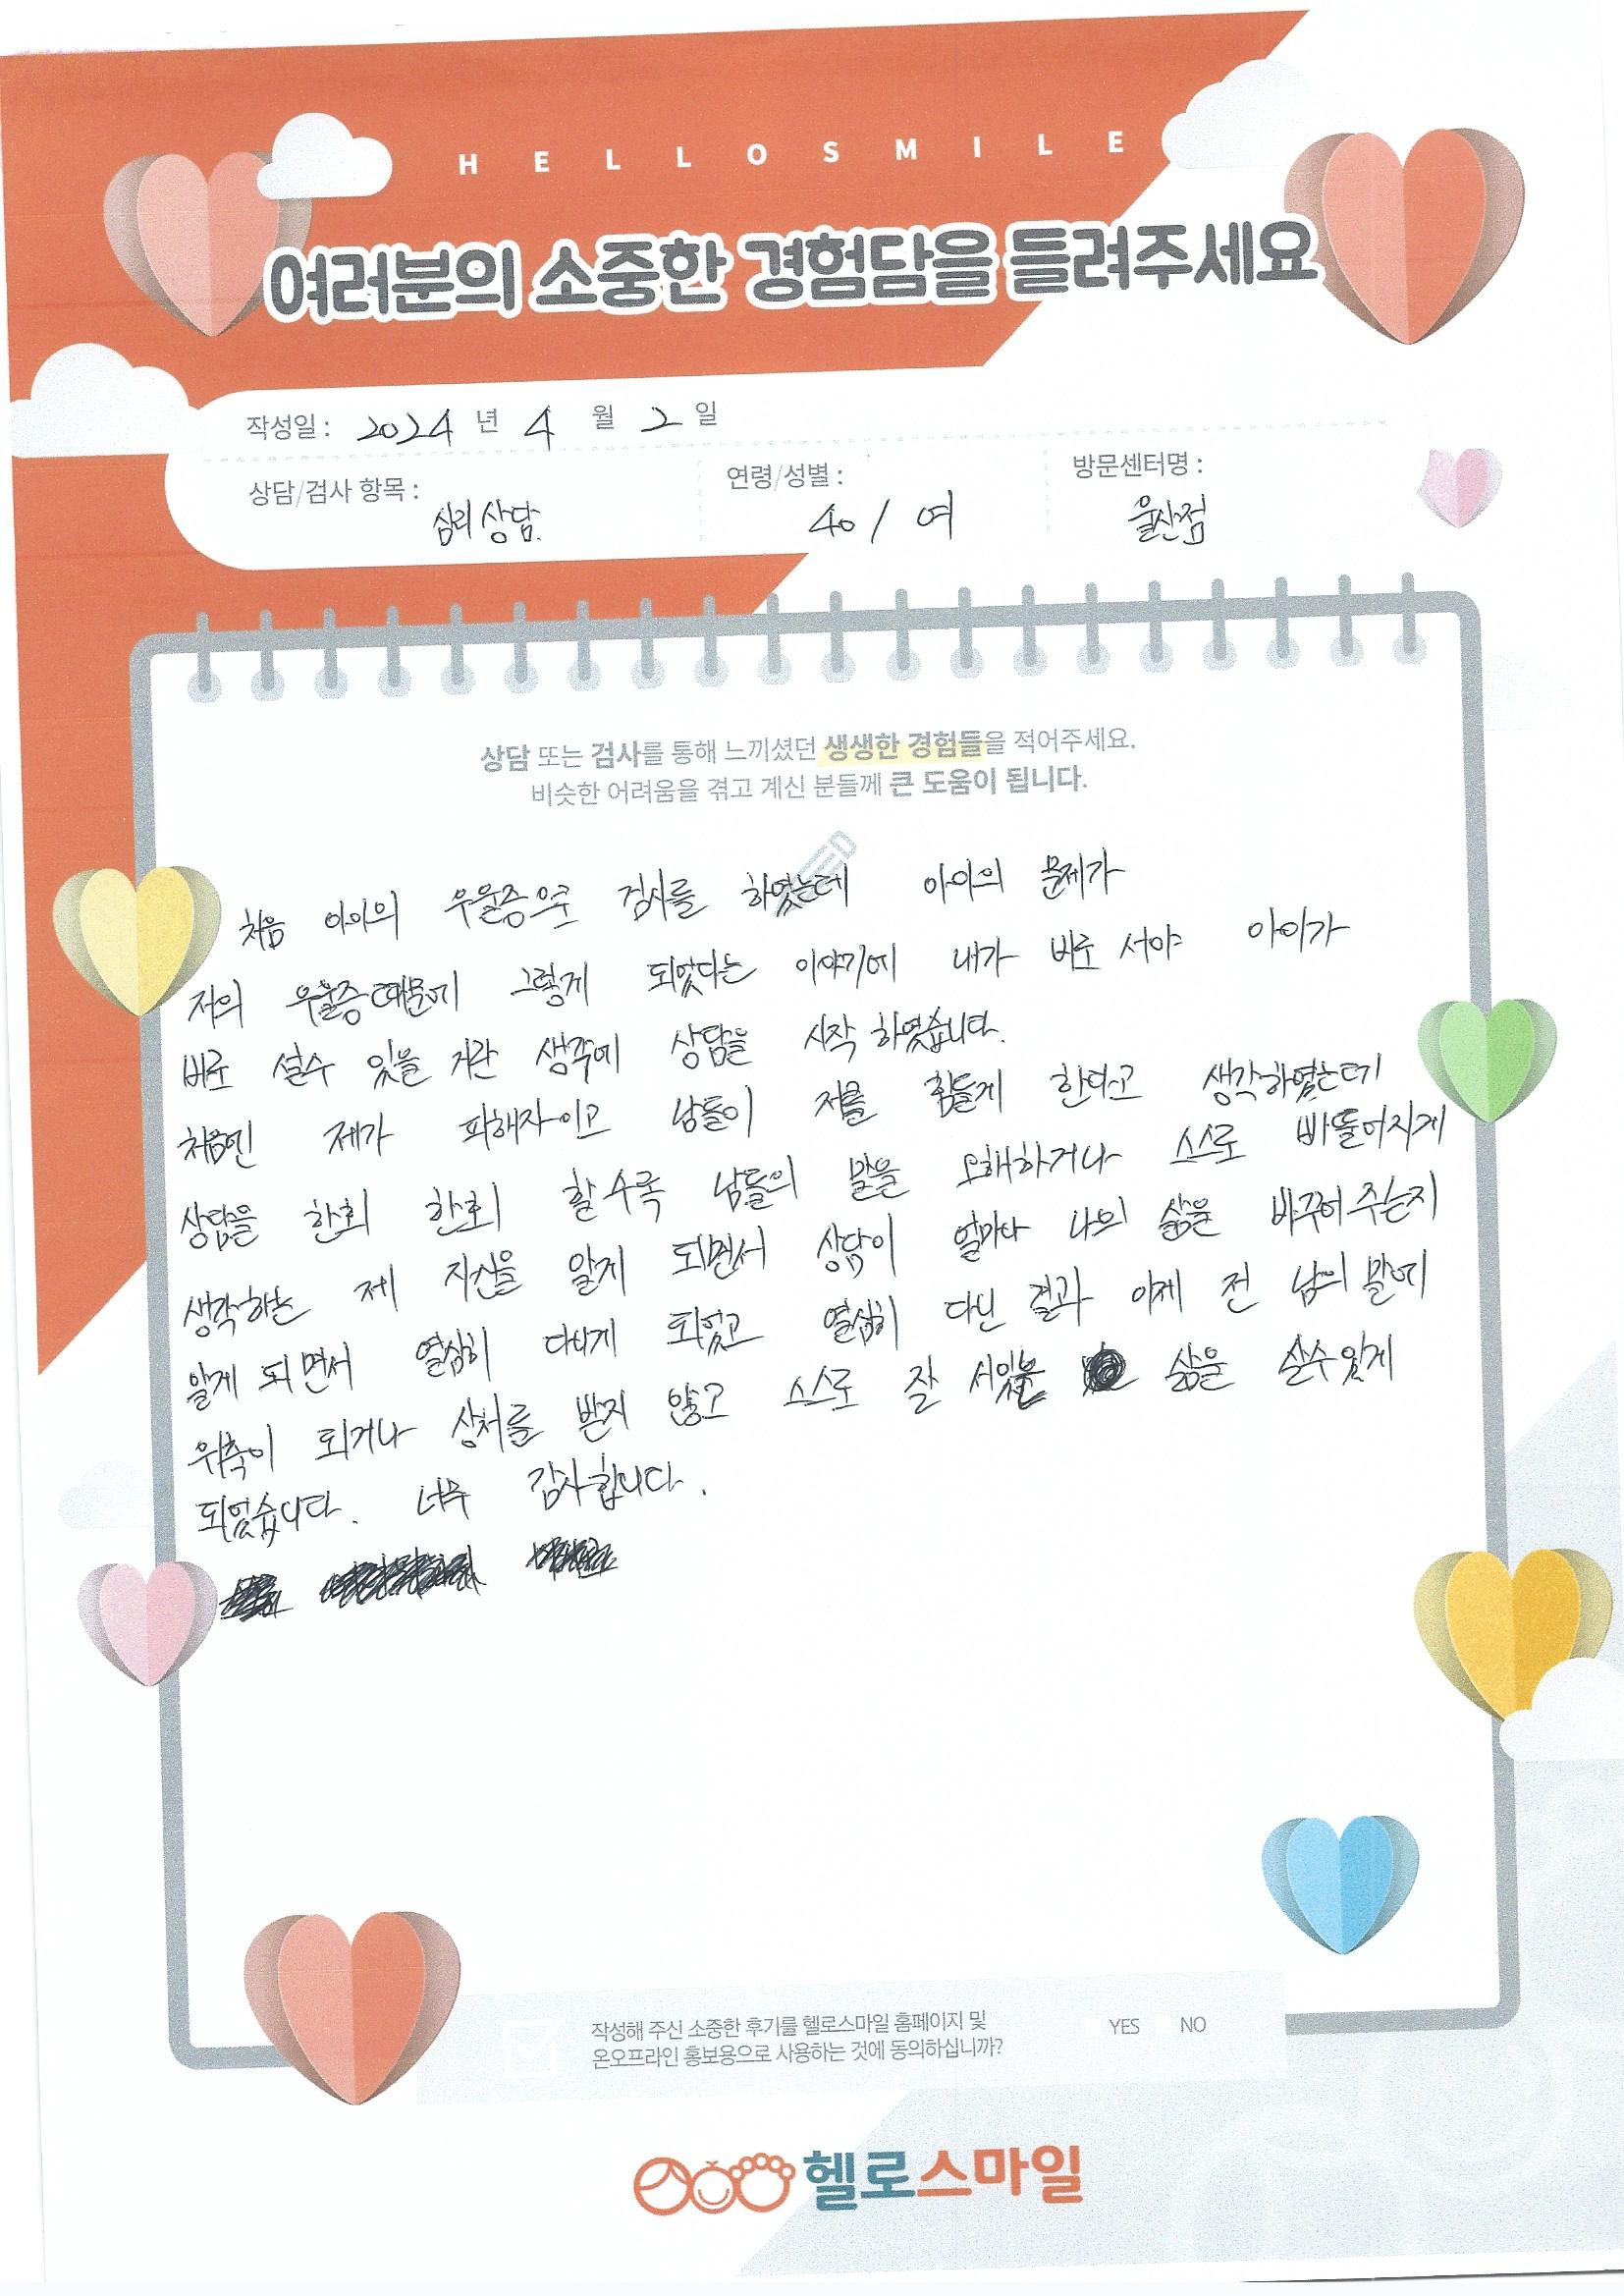 HELLOSMILE
여러분의 소중한 경험담을 들려주세요
작성일 : 2024 년 4 월 2 일
상담/검사 항목 : 심리상담.
연령/성별 : 40 / 여
방문센터명 : 울산점
상담 또는 검사를 통해 느끼셨던 생생한 경험들을 적어주세요.
비슷한 어려움을 겪고 계신 분들께 큰 도움이 됩니다.
처음 아이의 우울증으로 검사를 하였는데 아이의 문제가
저의 우울증때문에 그렇게 되었다는 이야기에 내가 바로 서야 아이가
바로 설수 있을 거란 생각에 상담을 시작 하였습니다.
처음엔 제가 피해자이고 남들이 저를 힘들게 한다고 생각하였는데
상담을 한회 한회 할수록 남들의 말을 오해하거나 스스로 삐뚤어지게
생각하는 제 자신을 알게 되면서 상담이 얼마나 나의 삶을 바꾸어 주는지
알게 되면서 열심히 다니게 되었고 열심히 다닌 결과 이제 전 남의 말에
위축이 되거나 상처를 받지 않고 스스로 잘 서있는 삶을 살수있게
되었습니다. 너무 감사합니다.
작성해 주신 소중한 후기를 헬로스마일 홈페이지 및
온오프라인 홍보용으로 사용하는 것에 동의하십니까?
YES NO
헬로스마일